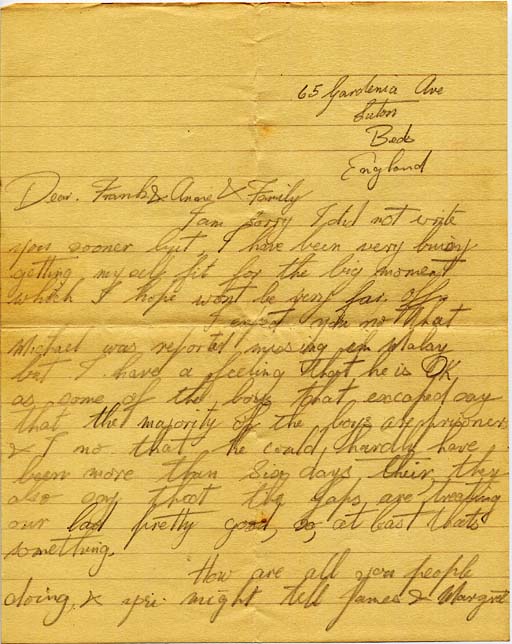 65 Gardenia Ave
Luton
Beds
England
Dear. Frank & Anne & Family
I am sorry I did not write
you sooner but I have been very busiy
getting my self fit for the big moment
which I hope wont be very far off.
I expect you no that
Michael was reported missing in Malay
but I have a feeling that he is OK
as some of the boys that escaped say
that the majority of the boys are prisoners
& I no that he could hardly have
been more than six days their, they
also say that the Japs are treating
our lads pretty good, so, at least thats
something.
How are all you people
doing, & you might tell James & Margret